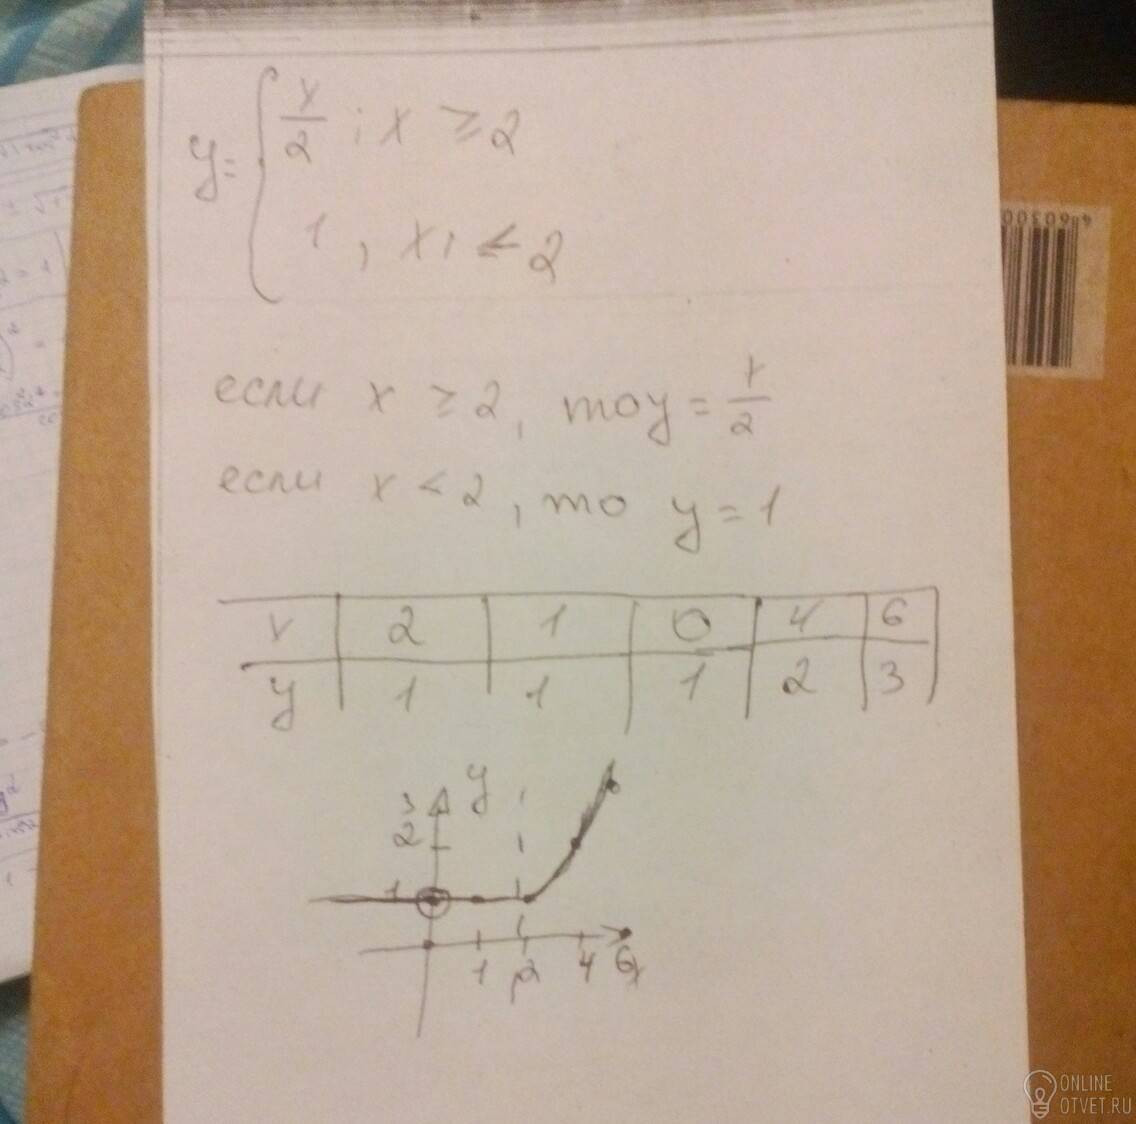 y = { x/2 ; x ≥ 2
1 , x, < 2
если x ≥ 2, то y = x/2
если x < 2, то y = 1
x 2 1 0 4 6
y 1 1 1 2 3
y
3
2
1
1 2 4 6 x
460300
ONLINE
OTVET.RU